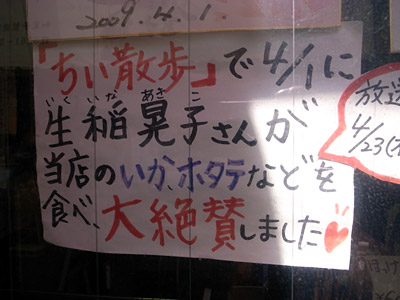 2009.4.1.
「ちい散歩」で4/1に
いくいなあきこ
生稲晃子さんが
当店のいか、ホタテなどを
食べ、大絶賛しました
放送
4/23(木